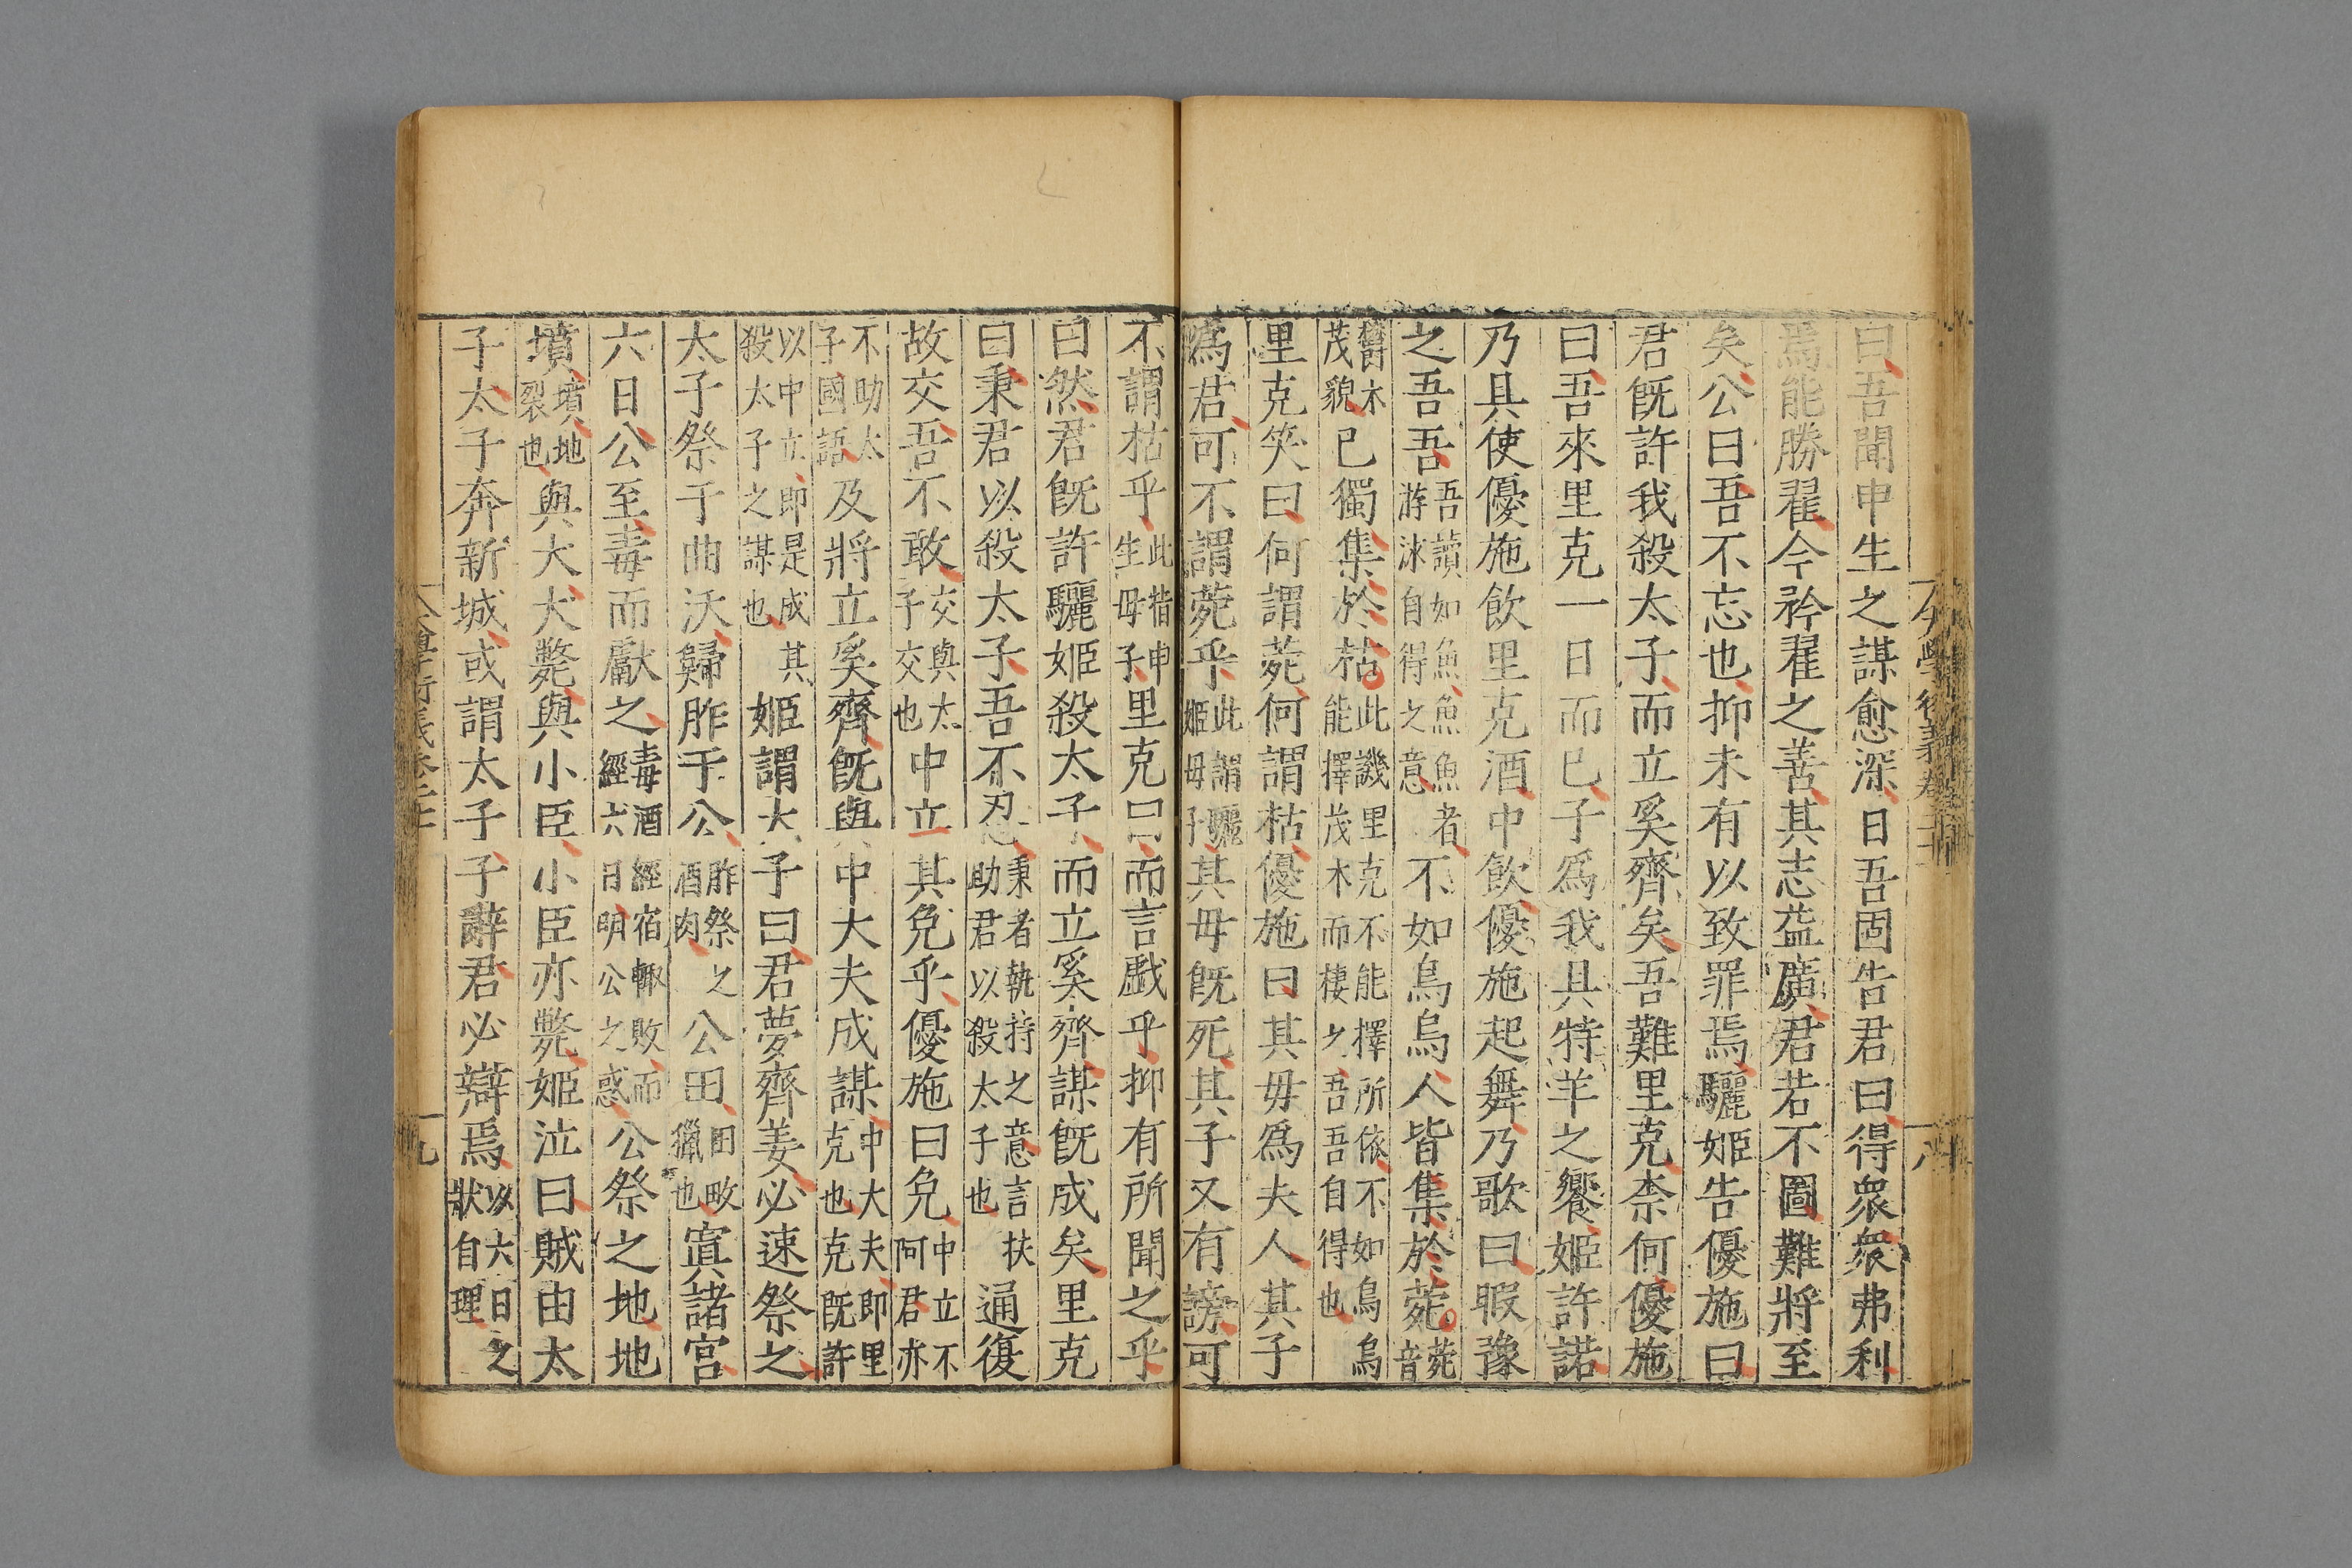 曰吾聞申生之謀愈深日吾固告君曰得衆衆弗利
焉能勝翟今矜翟之善其志益廣君若不圖難將至
矣公曰吾不忘也抑未有以致罪焉驪姬告優施曰
君旣許我殺太子而立奚齊矣吾難里克柰何優施
曰吾來里克一日而已子爲我具特羊之饗姬許諾
乃具使優施飲里克酒中飲優施起舞乃歌曰暇豫
之吾吾吾讀如魚魚魚者游泳自得之意不如烏烏人皆集於菀菀音
鬱木茂貌已獨集於枯此譏里克不能擇所依不如烏烏能擇茂木而棲之吾吾自得也
里克笑曰何謂菀何謂枯優施曰其母爲夫人其子
爲君可不謂菀乎此謂驪姬母子其母旣死其子又有謗可
不謂枯乎此指申生母子里克曰而言戲乎抑有所聞之乎
曰然君旣許驪姬殺太子而立奚齊謀旣成矣里克
曰秉君以殺太子吾不忍秉者執持之意言扶助君以殺太子也通復
故交吾不敢交與太子交也中立其免乎優施曰免中立不阿君亦
不助太子國語及將立奚齊旣與中大夫成謀中大夫即里克也克旣許
以中立即是成其殺太子之謀也其姬謂太子曰君夢齊姜必速祭之
太子祭于曲沃歸胙于公胙祭之酒肉公田田畋獵也寘諸宮
六日公至毒而獻之毒酒經宿輒敗而經六日明公之惑公祭之地地
墳墳地裂也與犬犬斃與小臣小臣亦斃姬泣曰賊由太
子太子奔新城或謂太子子辭君必辯焉以六日之狀自理
大學衍義卷二十
八
九